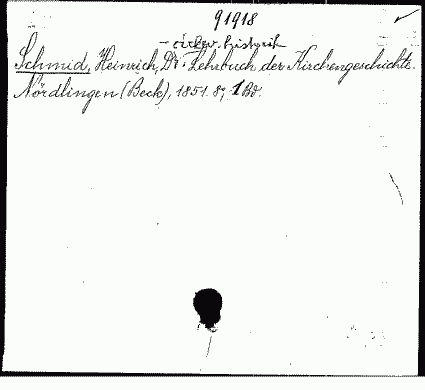 91918
- církev. historik
Schmid, Heinrich, Dr.: Lehrbuch der Kirchengeschichte.
Nördlingen (Beck), 1851. 8°. 1 Bd.